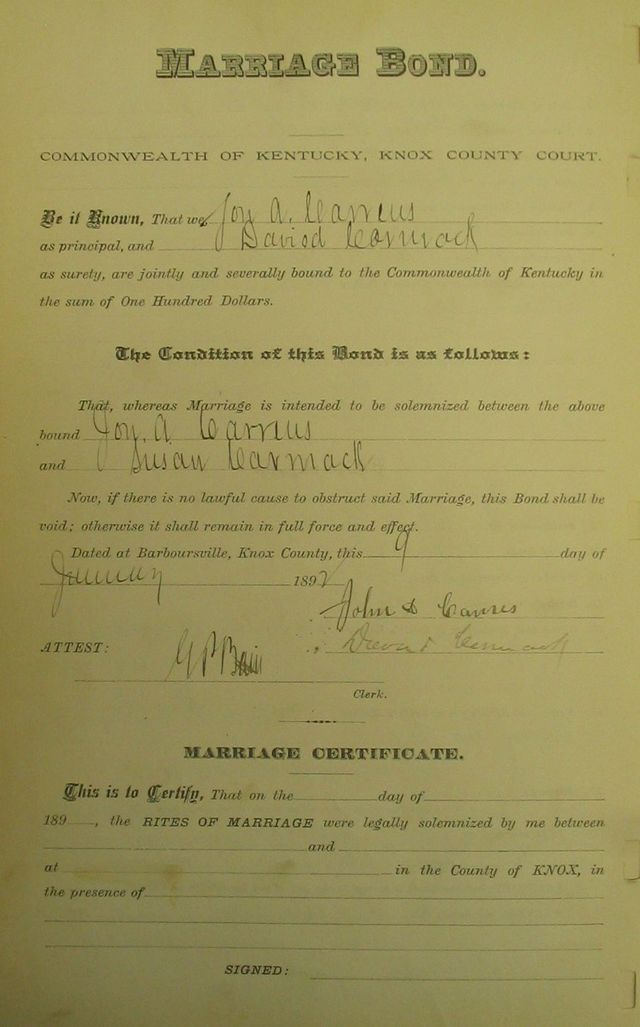 MARRIAGE BOND.
COMMONWEALTH OF KENTUCKY, KNOX COUNTY COURT.
Be it Known, That we, A.
as principal, and David Cormack
as surety, are jointly and severally bound to the Commonwealth of Kentucky in
the sum of One Hundred Dollars.
The Condition of this Bond is as follows:
That, whereas Marriage is intended to be solemnized between the above
bound A
and Susan Carmack
Now, if there is no lawful cause to obstruct said Marriage, this Bond shall be
void; otherwise it shall remain in full force and effect.
Dated at Barboursville, Knox County, this 9 day of
January 1892
John
ATTEST: G P Bain
Clerk.
MARRIAGE CERTIFICATE.
This is to Certify, That on the day of
189 , the RITES OF MARRIAGE were legally solemnized by me between
and
at in the County of KNOX, in
the presence of
SIGNED: